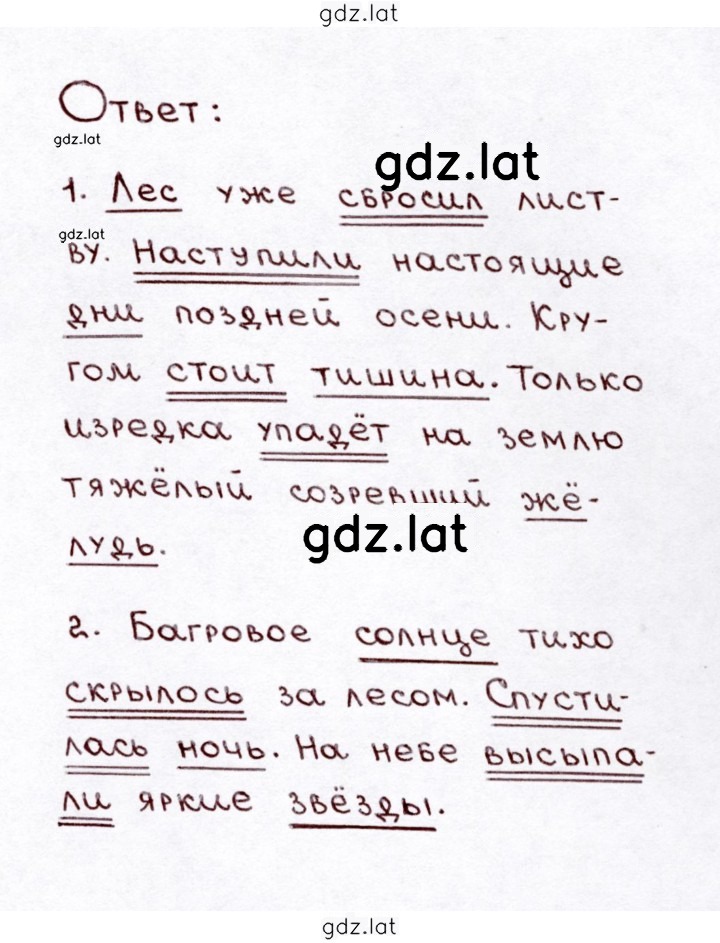 gdz.lat
Ответ:
gdz.lat
gdz.lat
1. Лес уже сбросил лист-
gdz.lat
ву. Наступили настоящие
дни поздней осени. Кру-
гом стоит тишина. Только
изредка упадёт на землю
тяжёлый созревший жё-
gdz.lat
лудь.
2. Багровое солнце тихо
скрылось за лесом. Спусти-
лась ночь. На небе высыпа-
ли яркие звёзды.
gdz.lat